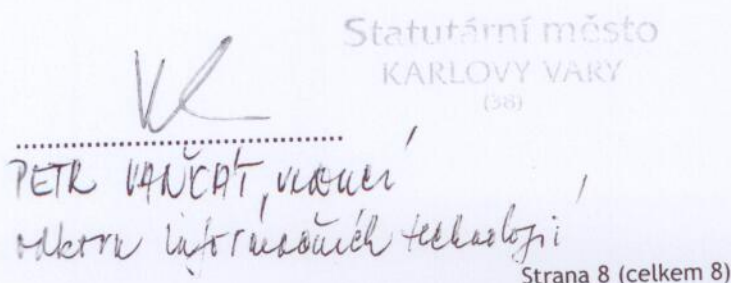 Statutární město
KARLOVY VARY
(38)
PETR VANČAT, vedoucí
odboru informačních technologií
Strana 8 (celkem 8)